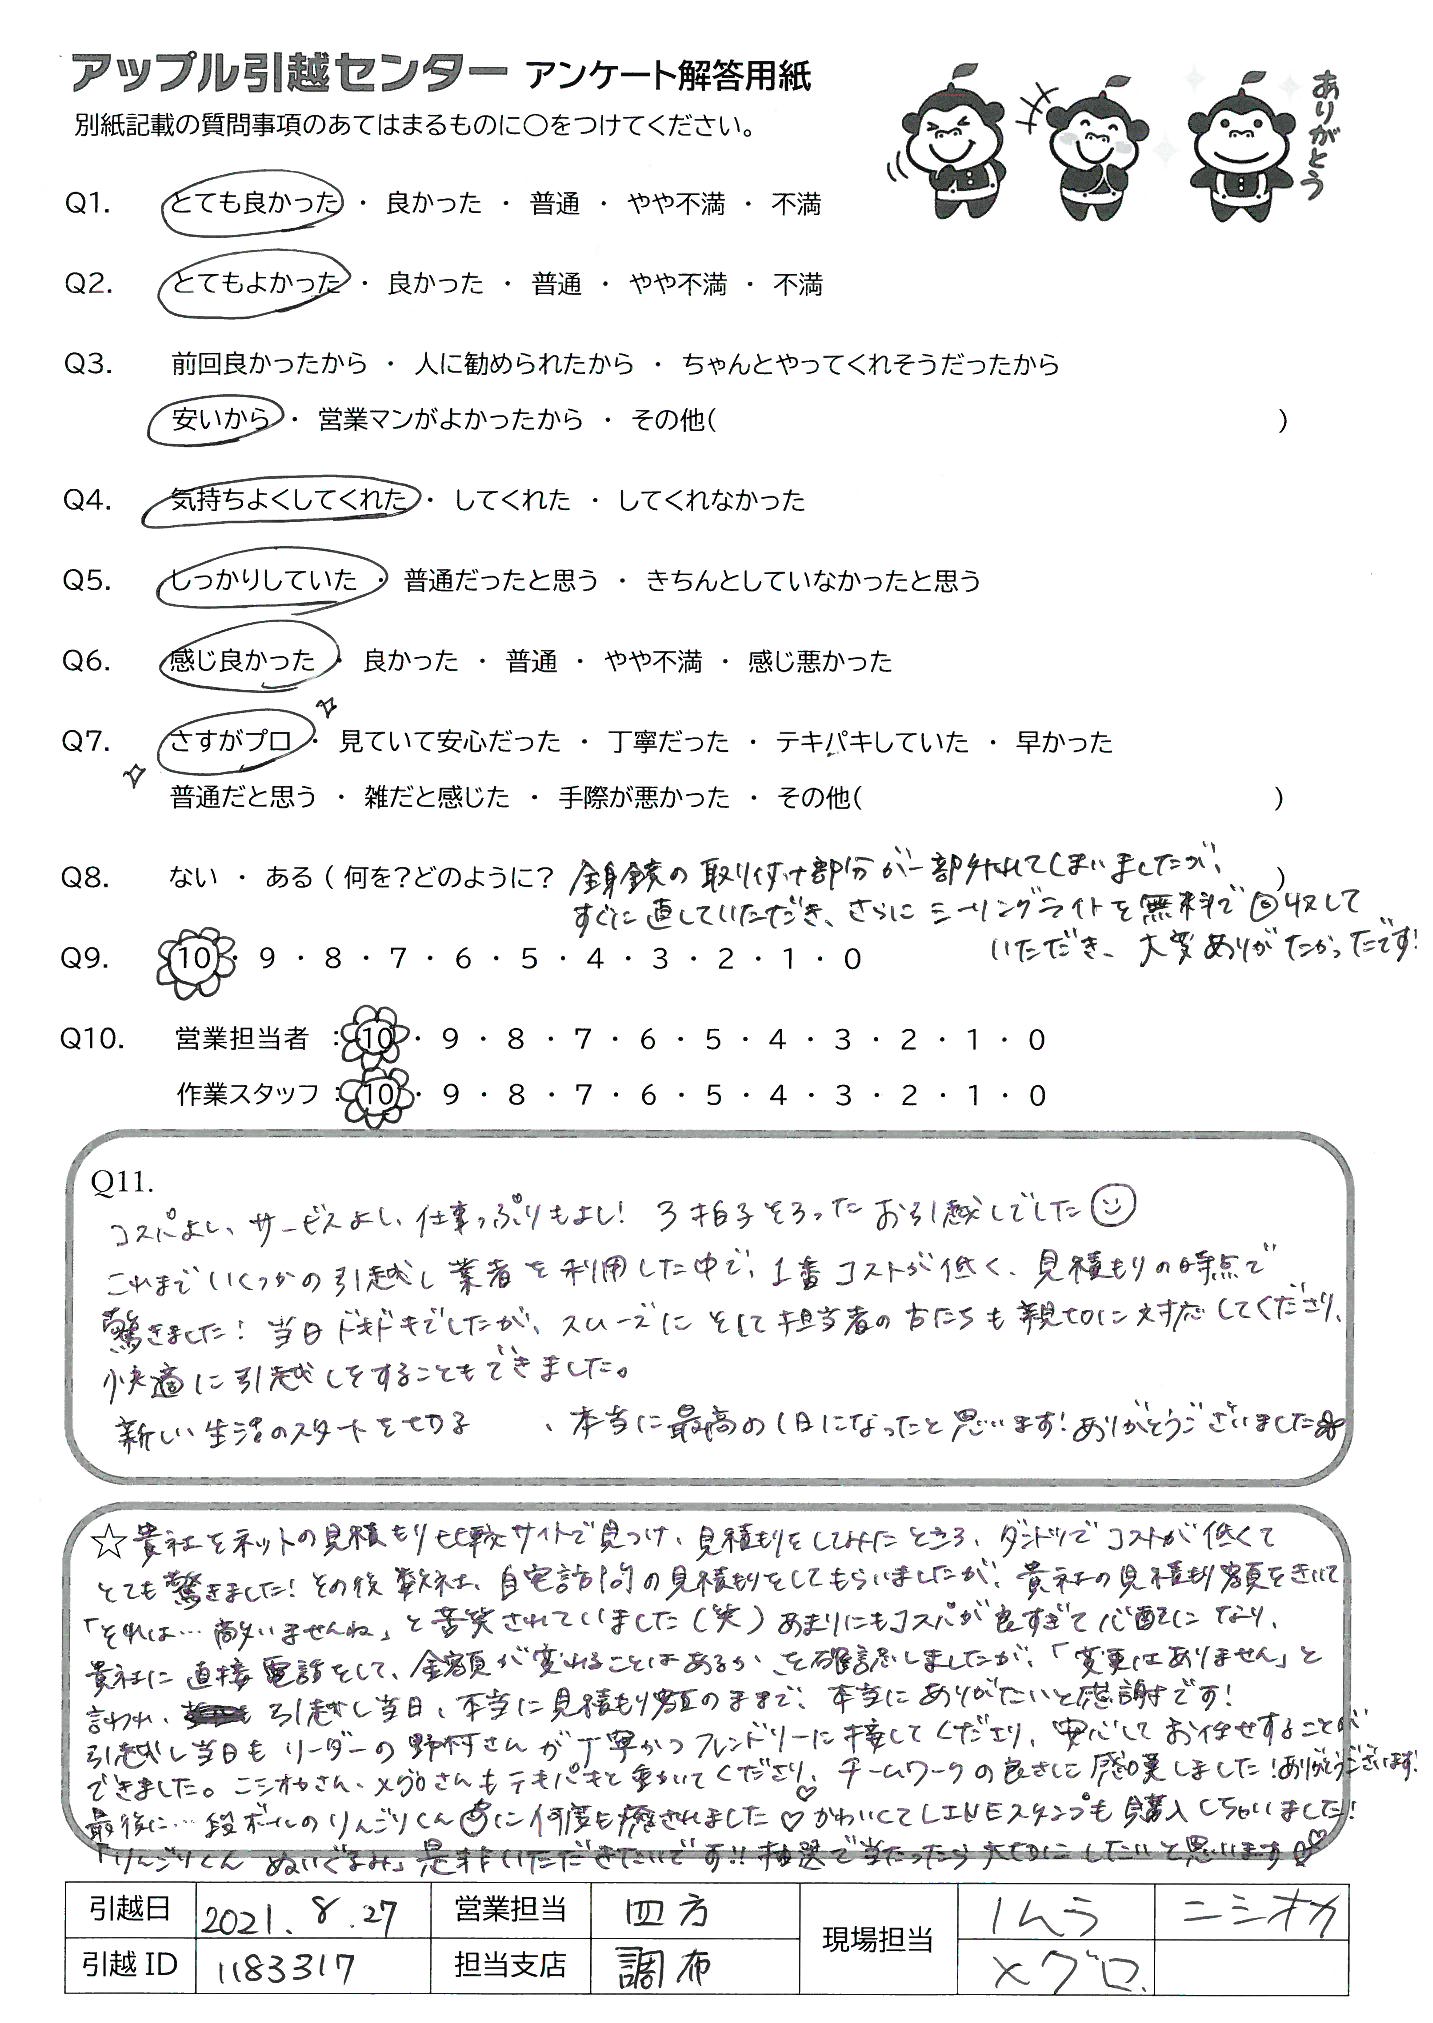 アップル引越センター アンケート解答用紙
別紙記載の質問事項のあてはまるものに○をつけてください。
ありがとう
Q1. とても良かった ・ 良かった ・ 普通 ・ やや不満 ・ 不満
Q2. とてもよかった ・ 良かった ・ 普通 ・ やや不満 ・ 不満
Q3. 前回良かったから ・ 人に勧められたから ・ ちゃんとやってくれそうだったから
安いから ・ 営業マンがよかったから ・ その他( )
Q4. 気持ちよくしてくれた ・ してくれた ・ してくれなかった
Q5. しっかりしていた ・ 普通だったと思う ・ きちんとしていなかったと思う
Q6. 感じ良かった ・ 良かった ・ 普通 ・ やや不満 ・ 感じ悪かった
Q7. さすがプロ ・ 見ていて安心だった ・ 丁寧だった ・ テキパキしていた ・ 早かった
普通だと思う ・ 雑だと感じた ・ 手際が悪かった ・ その他( )
Q8. ない ・ ある ( 何を?どのように? 全身鏡の取り付け部分が一部外れてしまいましたが、 )
すぐに直していただき、さらにシーリングライトを無料で回収して
いただき、大変ありがたかったです!
Q9. 10 ・ 9 ・ 8 ・ 7 ・ 6 ・ 5 ・ 4 ・ 3 ・ 2 ・ 1 ・ 0
Q10. 営業担当者 : 10 ・ 9 ・ 8 ・ 7 ・ 6 ・ 5 ・ 4 ・ 3 ・ 2 ・ 1 ・ 0
作業スタッフ : 10 ・ 9 ・ 8 ・ 7 ・ 6 ・ 5 ・ 4 ・ 3 ・ 2 ・ 1 ・ 0
Q11.
コスパよし、サービスよし、仕事っぷりもよし! 3拍子そろったお引越しでした
これまでいくつかの引越し業者を利用した中で、1番コストが低く、見積もりの時点で
驚きました! 当日ドキドキでしたが、スムーズにそして担当者の方たちも親切に対応してくださり、
快適に引越しをすることもできました。
新しい生活のスタートを切る 、本当に最高の1日になったと思います!ありがとうございました
☆貴社をネットの見積もり比較サイトで見つけ、見積もりをしてみたところ、ダントツでコストが低くて
とても驚きました!その後数社、自宅訪問の見積もりをしてもらいましたが、貴社の見積もり額をきいて
「それは…敵いませんね」と苦笑されていました(笑)あまりにもコスパが良すぎて心配になり、
貴社に直接電話をして、金額が変わることはあるか、を確認しましたが、「変更はありません」と
言われ、引越し当日、本当に見積もり額のままで、本当にありがたいと感謝です!
引越し当日もリーダーの野村さんが丁寧かつフレンドリーに接してくださり、安心してお任せすることが
できました。ニシオカさん、メグロさんもテキパキと動いてくださり、チームワークの良さに感嘆しました!ありがとうございます!
最後に…段ボールのりんごりくんに何度も癒されました♡かわいくてLINEスタンプも購入しちゃいました!
「りんごりくん ぬいぐるみ」是非いただきたいです!!抽選で当たったら大切にしたいと思います♡
引越日 2021. 8. 27 営業担当 四方 現場担当 ニシオカ
引越 ID 1183317 担当支店 調布 メグロ.